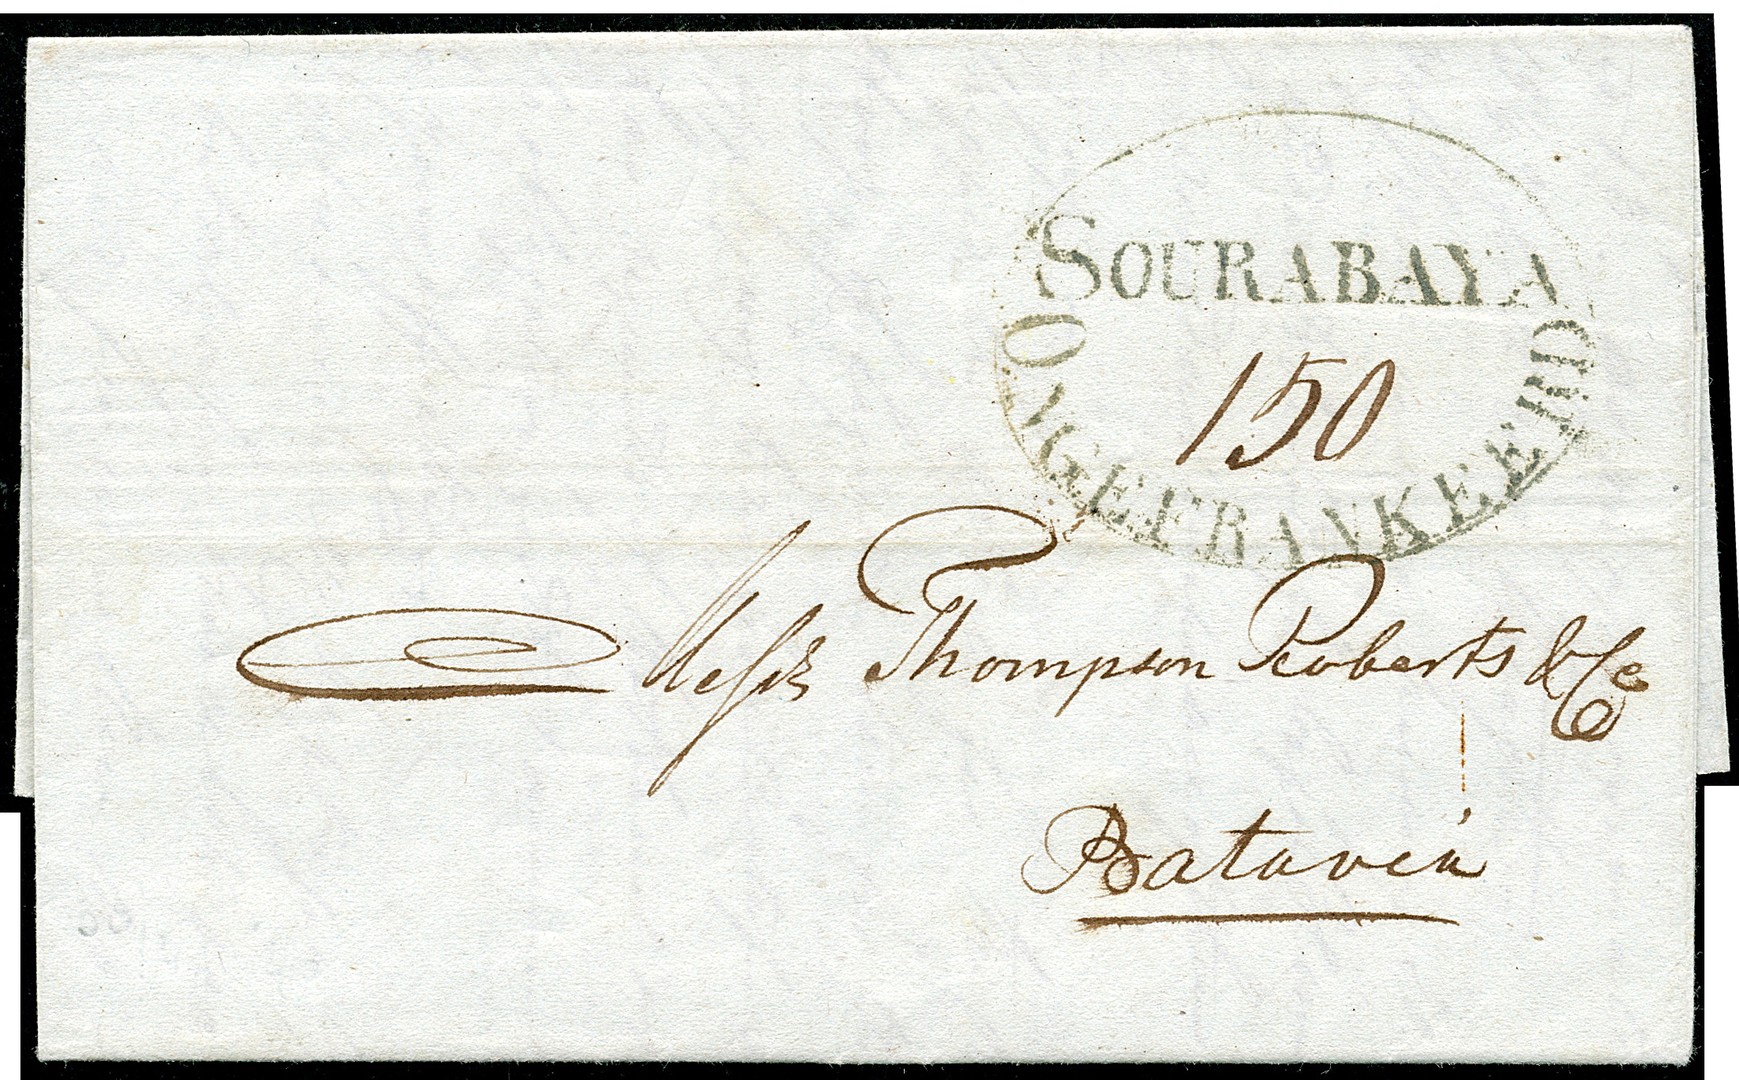 SOURABAYA
ONGEFRANKEERD
150
Messrs Thompson Roberts & Co
Batavia